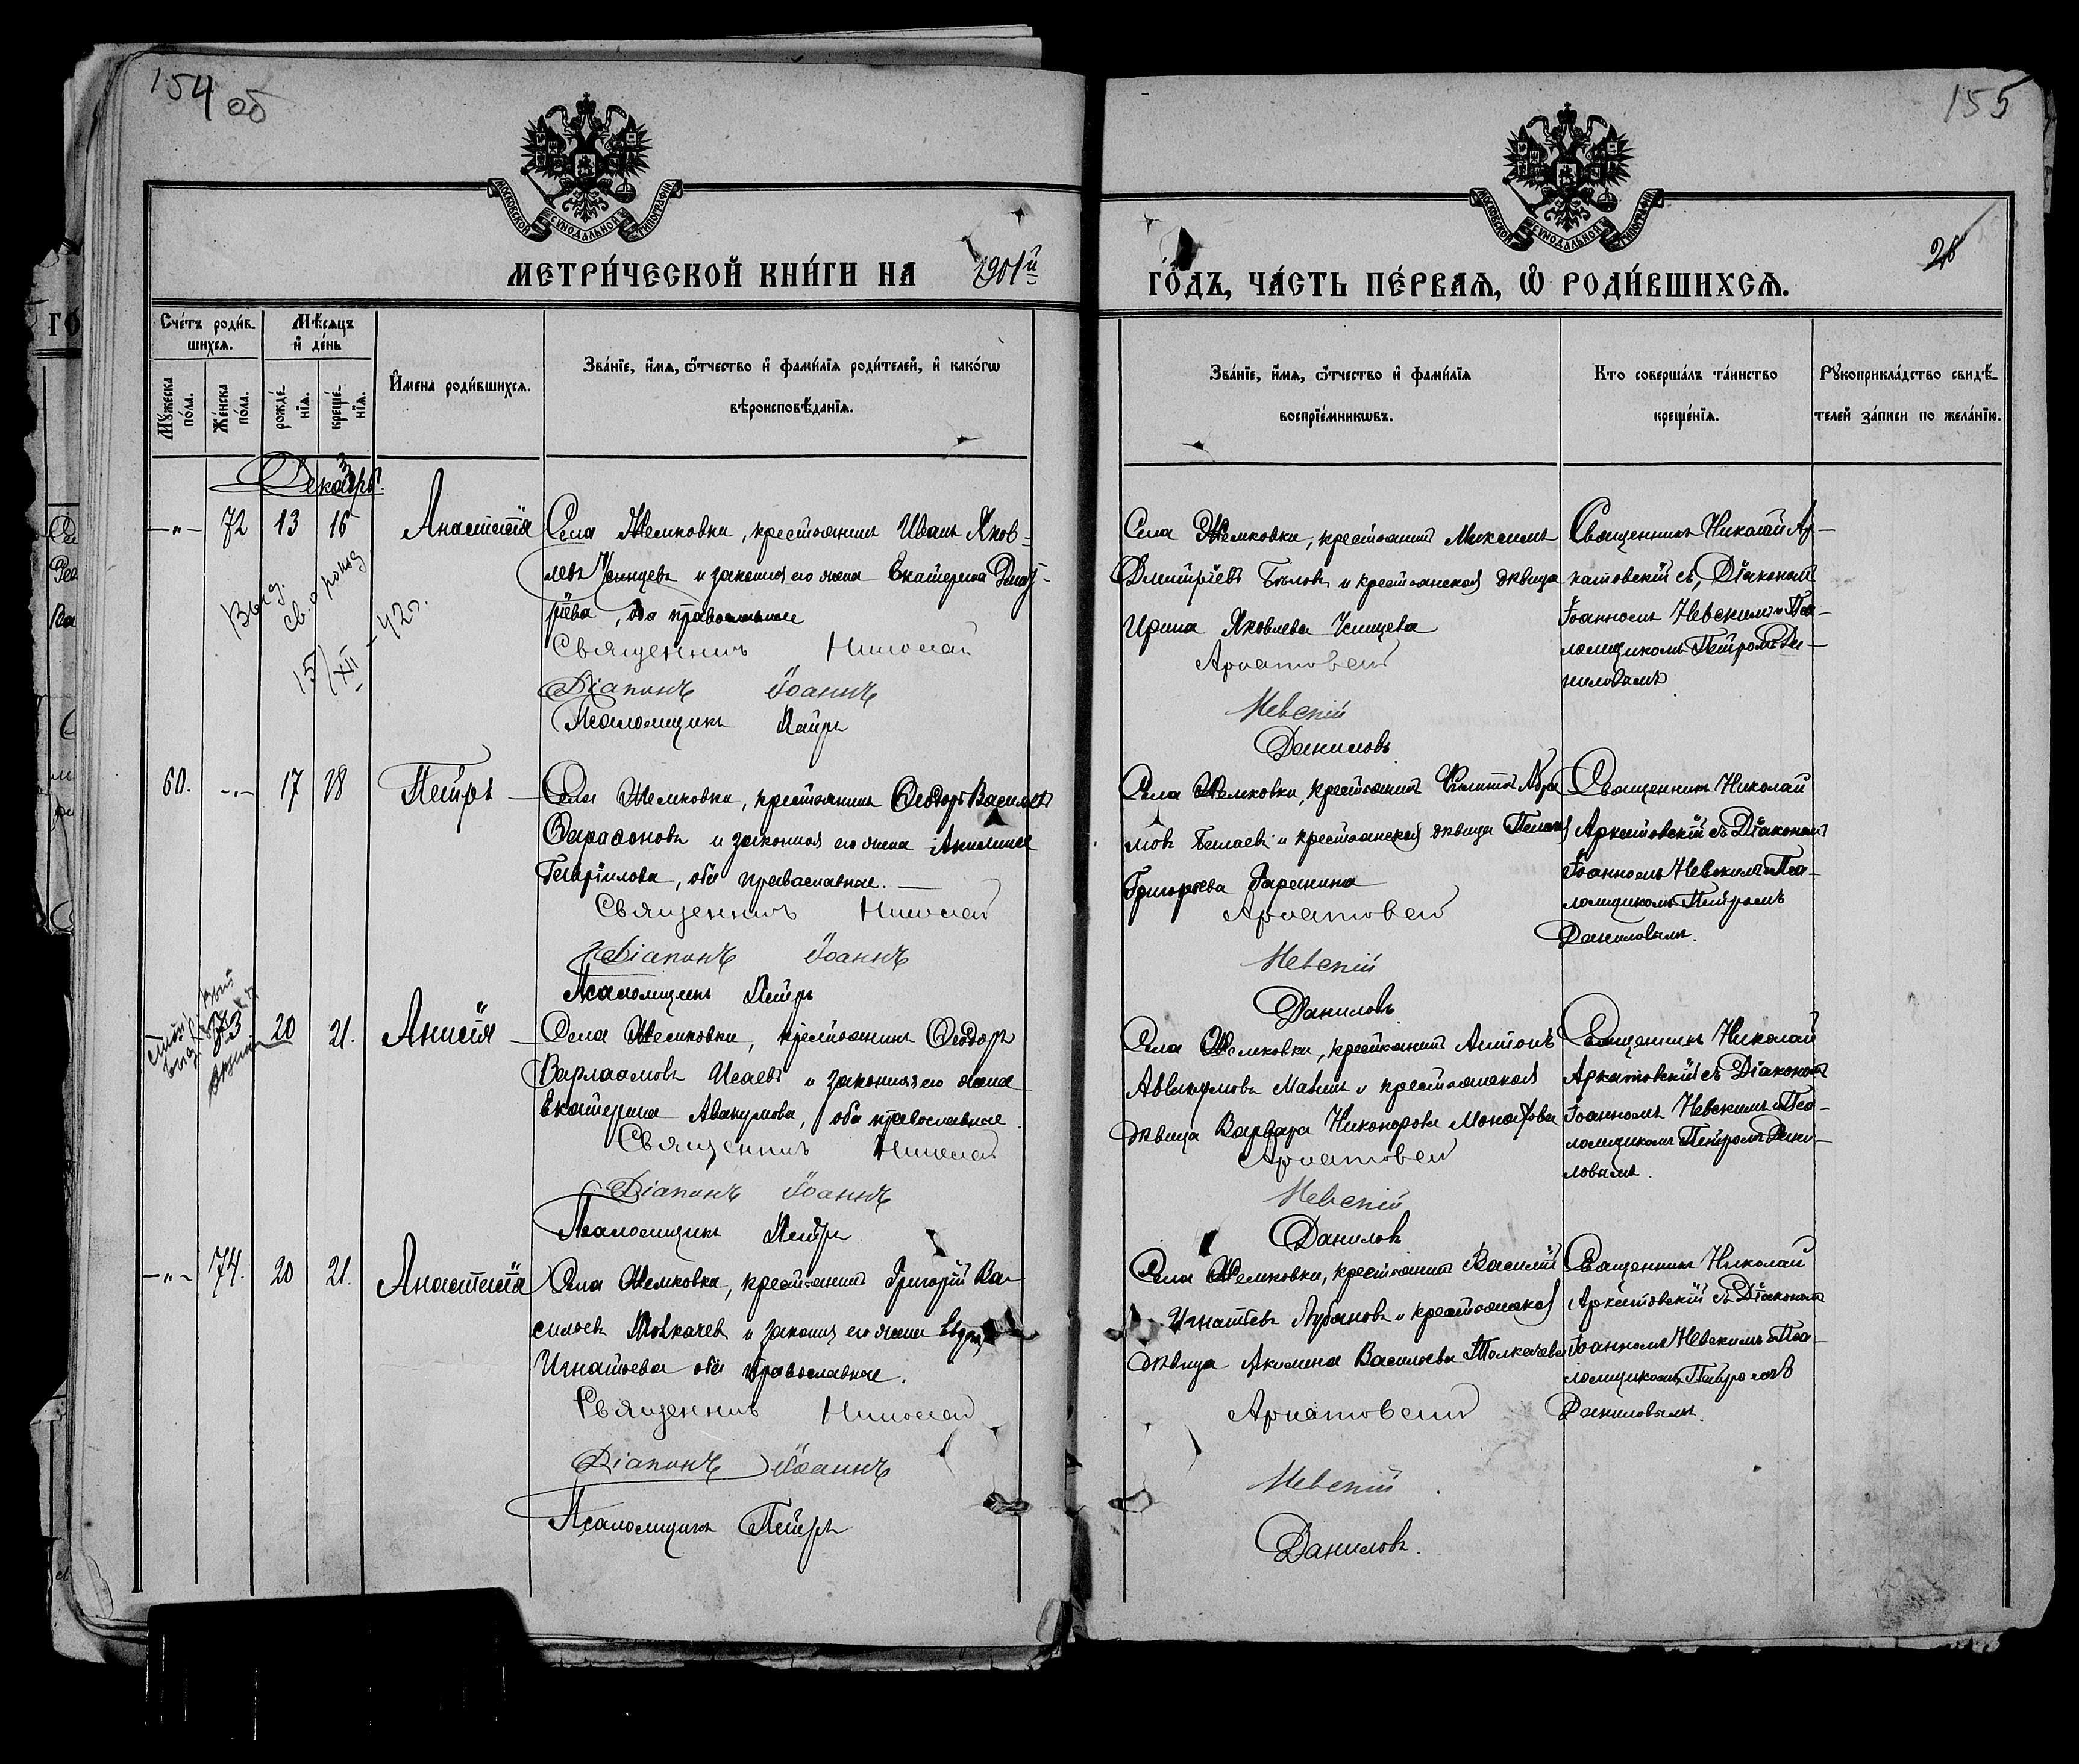 154 об
155
МОСКОВСКОЙ СѴНОДАЛЬНОЙ ТИПОГРАФІИ
МОСКОВСКОЙ СѴНОДАЛЬНОЙ ТИПОГРАФІИ
26
МЕТРИ́ЧЕСКОЙ КНИ́ГИ НА 1901й
ГО́ДЪ, ЧА́СТЬ ПЕ́РВАѦ, Ѡ҆ РОДИ́ВШИХСѦ.
Сче́тъ роди́в-
шихсѧ.
Мѣ́сѧцъ
и҆ де́нь
Мꙋ́жеска
по́ла.
Же́нска
по́ла.
рожде́-
нїѧ.
креще́-
нїѧ.
И҆мена роди́вшихсѧ.
Зва́нїе, и҆́мѧ, ѻ҆́тчество и҆ фами́лїѧ роди́телей, и҆ како́гѡ
вѣроисповѣ́данїѧ.
Зва́нїе, и҆́мѧ, ѻ҆́тчество и҆ фами́лїѧ
воспрїе́мникѡвъ.
Кто соверша́лъ та́инство
креще́нїѧ.
Рꙋкоприкла́дство свидѣ́-
телей за́писи по жела́нїю.
Декабрь.
—"— 72 13 16 Анастасія
Села Жемковки, крестьянинъ Иванъ Яков-
левъ Усищевъ и законная его жена Екатерина Дмит-
ріева, оба православные
Священникъ Николай
Діаконъ Іоаннъ
Псаломщикъ Петръ
Выд.
св. о рожд
15/XII – 42 г.
Села Жемковки, крестьянинъ Максимъ
Дмитріевъ Бѣловъ и крестьянская дѣвица
Ирина Яковлева Усищева
Аркатовскій
Невскій
Даниловъ
Священникъ Николай Ар-
катовскій съ Діакономъ
Іоанномъ Невскимъ и Пса-
ломщикомъ Петромъ Да-
ниловымъ
60. -"- 17 18 Петръ
Села Жемковки, крестьянинъ Ѳеодоръ Васильевъ
и законная его жена Акилина
Гавріилова, оба православные.
Священникъ Николай
Діаконъ Іоаннъ
Псаломщикъ Петръ
Села Жемковки, крестьянинъ
и крестьянская дѣвица
Григорьева Гаренина
Аркатовскій
Невскій
Даниловъ
Священникъ Николай
Аркатовскій съ Діакономъ
Іоанномъ Невскимъ и Пса-
ломщикомъ Петромъ
Даниловымъ.
73 20 21. Анисія
Села Жемковки, крестьянинъ Ѳеодоръ
Варлаамовъ Исаевъ и законная его жена
Екатерина Авакумова, оба православные.
Священникъ Николай
Діаконъ Іоаннъ
Псаломщикъ Петръ
Села Жемковки, крестьянинъ Антонъ
Аввакумовъ и крестьянская
дѣвица Варвара Никонорова Монахова
Аркатовскій
Невскій
Даниловъ
Священникъ Николай
Аркатовскій съ Діакономъ
Іоанномъ Невскимъ и Пса-
ломщикомъ Петромъ Дани-
ловымъ.
—"— 74. 20 21. Анастасія
Села Жемковки, крестьянинъ Григорій Ва-
сильевъ Толкачевъ и законная его жена
Игнатьева оба православные.
Священникъ Николай
Діаконъ Іоаннъ
Псаломщикъ Петръ
Села Жемковки, крестьянинъ Василій
Игнатьевъ и крестьянская
дѣвица Акилина Васильева Толкачева
Аркатовскій
Невскій
Даниловъ.
Священникъ Николай
Аркатовскій съ Діакономъ
Іоанномъ Невскимъ и Пса-
ломщикомъ Петромъ
Даниловымъ.